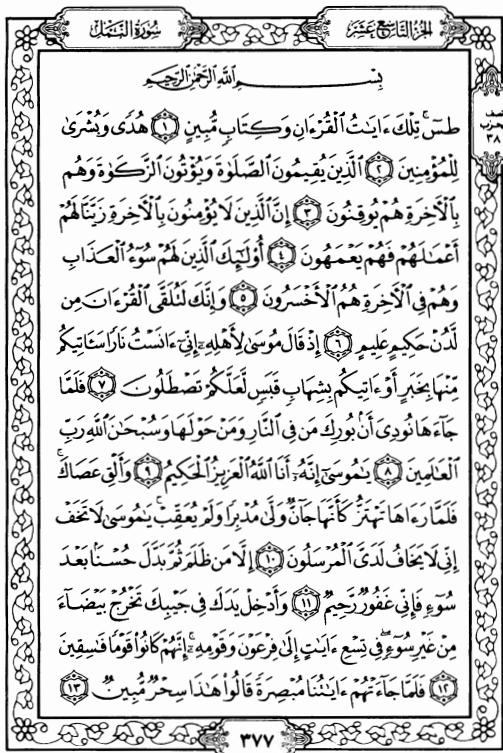 الجزء التاسع عشر
سورة النمل
بِسْمِ اللَّهِ الرَّحْمَٰنِ الرَّحِيمِ
طسٓ ۚ تِلْكَ ءَايَٰتُ الْقُرْءَانِ وَكِتَابٍ مُّبِينٍ ١ هُدًى وَبُشْرَىٰ
لِلْمُؤْمِنِينَ ٢ الَّذِينَ يُقِيمُونَ الصَّلَوٰةَ وَيُؤْتُونَ الزَّكَوٰةَ وَهُم
بِالْءَاخِرَةِ هُمْ يُوقِنُونَ ٣ إِنَّ الَّذِينَ لَا يُؤْمِنُونَ بِالْءَاخِرَةِ زَيَّنَّا لَهُمْ
أَعْمَٰلَهُمْ فَهُمْ يَعْمَهُونَ ٤ أُو۟لَٰٓئِكَ الَّذِينَ لَهُمْ سُوٓءُ الْعَذَابِ
وَهُمْ فِي الْءَاخِرَةِ هُمُ الْأَخْسَرُونَ ٥ وَإِنَّكَ لَتُلَقَّى الْقُرْءَانَ مِن
لَّدُنْ حَكِيمٍ عَلِيمٍ ٦ إِذْ قَالَ مُوسَىٰ لِأَهْلِهِۦٓ إِنِّيٓ ءَانَسْتُ نَارًا سَـَٔاتِيكُم
مِّنْهَا بِخَبَرٍ أَوْ ءَاتِيكُم بِشِهَابٍ قَبَسٍ لَّعَلَّكُمْ تَصْطَلُونَ ٧ فَلَمَّا
جَآءَهَا نُودِيَ أَنۢ بُورِكَ مَن فِي النَّارِ وَمَنْ حَوْلَهَا وَسُبْحَٰنَ اللَّهِ رَبِّ
الْعَٰلَمِينَ ٨ يَٰمُوسَىٰٓ إِنَّهُۥٓ أَنَا اللَّهُ الْعَزِيزُ الْحَكِيمُ ٩ وَأَلْقِ عَصَاكَ ۚ
فَلَمَّا رَءَاهَا تَهْتَزُّ كَأَنَّهَا جَآنٌّ وَلَّىٰ مُدْبِرًا وَلَمْ يُعَقِّبْ ۚ يَٰمُوسَىٰ لَا تَخَفْ
إِنِّي لَا يَخَافُ لَدَيَّ الْمُرْسَلُونَ ١٠ إِلَّا مَن ظَلَمَ ثُمَّ بَدَّلَ حُسْنًۢا بَعْدَ
سُوٓءٍ فَإِنِّي غَفُورٌ رَّحِيمٌ ١١ وَأَدْخِلْ يَدَكَ فِي جَيْبِكَ تَخْرُجْ بَيْضَآءَ
مِنْ غَيْرِ سُوٓءٍ ۖ فِي تِسْعِ ءَايَٰتٍ إِلَىٰ فِرْعَوْنَ وَقَوْمِهِۦٓ ۚ إِنَّهُمْ كَانُوا۟ قَوْمًا فَٰسِقِينَ
١٢ فَلَمَّا جَآءَتْهُمْ ءَايَٰتُنَا مُبْصِرَةً قَالُوا۟ هَٰذَا سِحْرٌ مُّبِينٌ ١٣
٣٧٧
الحزب
٣٨